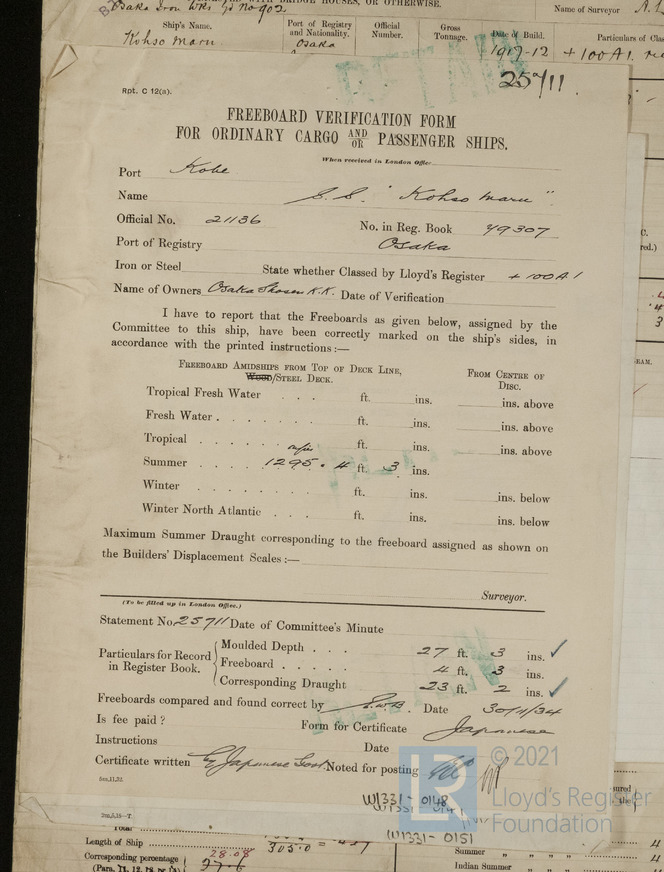 BRIDGE HOUSES, OR OTHERWISE.
Osaka Iron Wks Yd No 902
Name of Surveyor
Ship's Name.
Port of Registry and Nationality.
Official Number.
Gross Tonnage.
Date of Build.
Particulars of Clas
Kohso Maru
Osaka
1917-12
+100A1.
25711
Rpt. C 12(a).
FREEBOARD VERIFICATION FORM
FOR ORDINARY CARGO AND/OR PASSENGER SHIPS.
When received in London Office
Port Kobe
Name S.S. "Kohso Maru"
Official No. 21136 No. in Reg. Book 49307
Port of Registry Osaka
Iron or Steel State whether Classed by Lloyd's Register +100A1
Name of Owners Osaka Shosen K.K. Date of Verification
I have to report that the Freeboards as given below, assigned by the
Committee to this ship, have been correctly marked on the ship's sides, in
accordance with the printed instructions:—
FREEBOARD AMIDSHIPS FROM TOP OF DECK LINE,
WOOD/STEEL DECK.
FROM CENTRE OF
DISC.
Tropical Fresh Water . . . ft. ins. ins. above
Fresh Water . . . . . ft. ins. ins. above
Tropical . . . . . . ft. ins. ins. above
m/m
Summer . . . . . 1295 . 4 ft. 3 ins.
Winter . . . . . . ft. ins. ins. below
Winter North Atlantic . . . ft. ins. ins. below
Maximum Summer Draught corresponding to the freeboard assigned as shown on
the Builders' Displacement Scales:—
Surveyor.
(To be filled up in London Office.)
Statement No. 25711 Date of Committee's Minute
Particulars for Record in Register Book.
Moulded Depth . . . 27 ft. 3 ins. ✓
Freeboard . . . . . 4 ft. 3 ins.
Corresponding Draught 23 ft. 2 ins. ✓
Freeboards compared and found correct by Date 30/1/34
Is fee paid? Form for Certificate Japanese
Instructions Date
Certificate written By Japanese Govt. Noted for posting
© 2021
LR
Lloyd's Register
Foundation
W1331-0148
W1331-0151
Length of Ship 305.0
28.08
Corresponding percentage
(Para. 11, 12, 13 or 14)
Summer " "
Indian Summer "